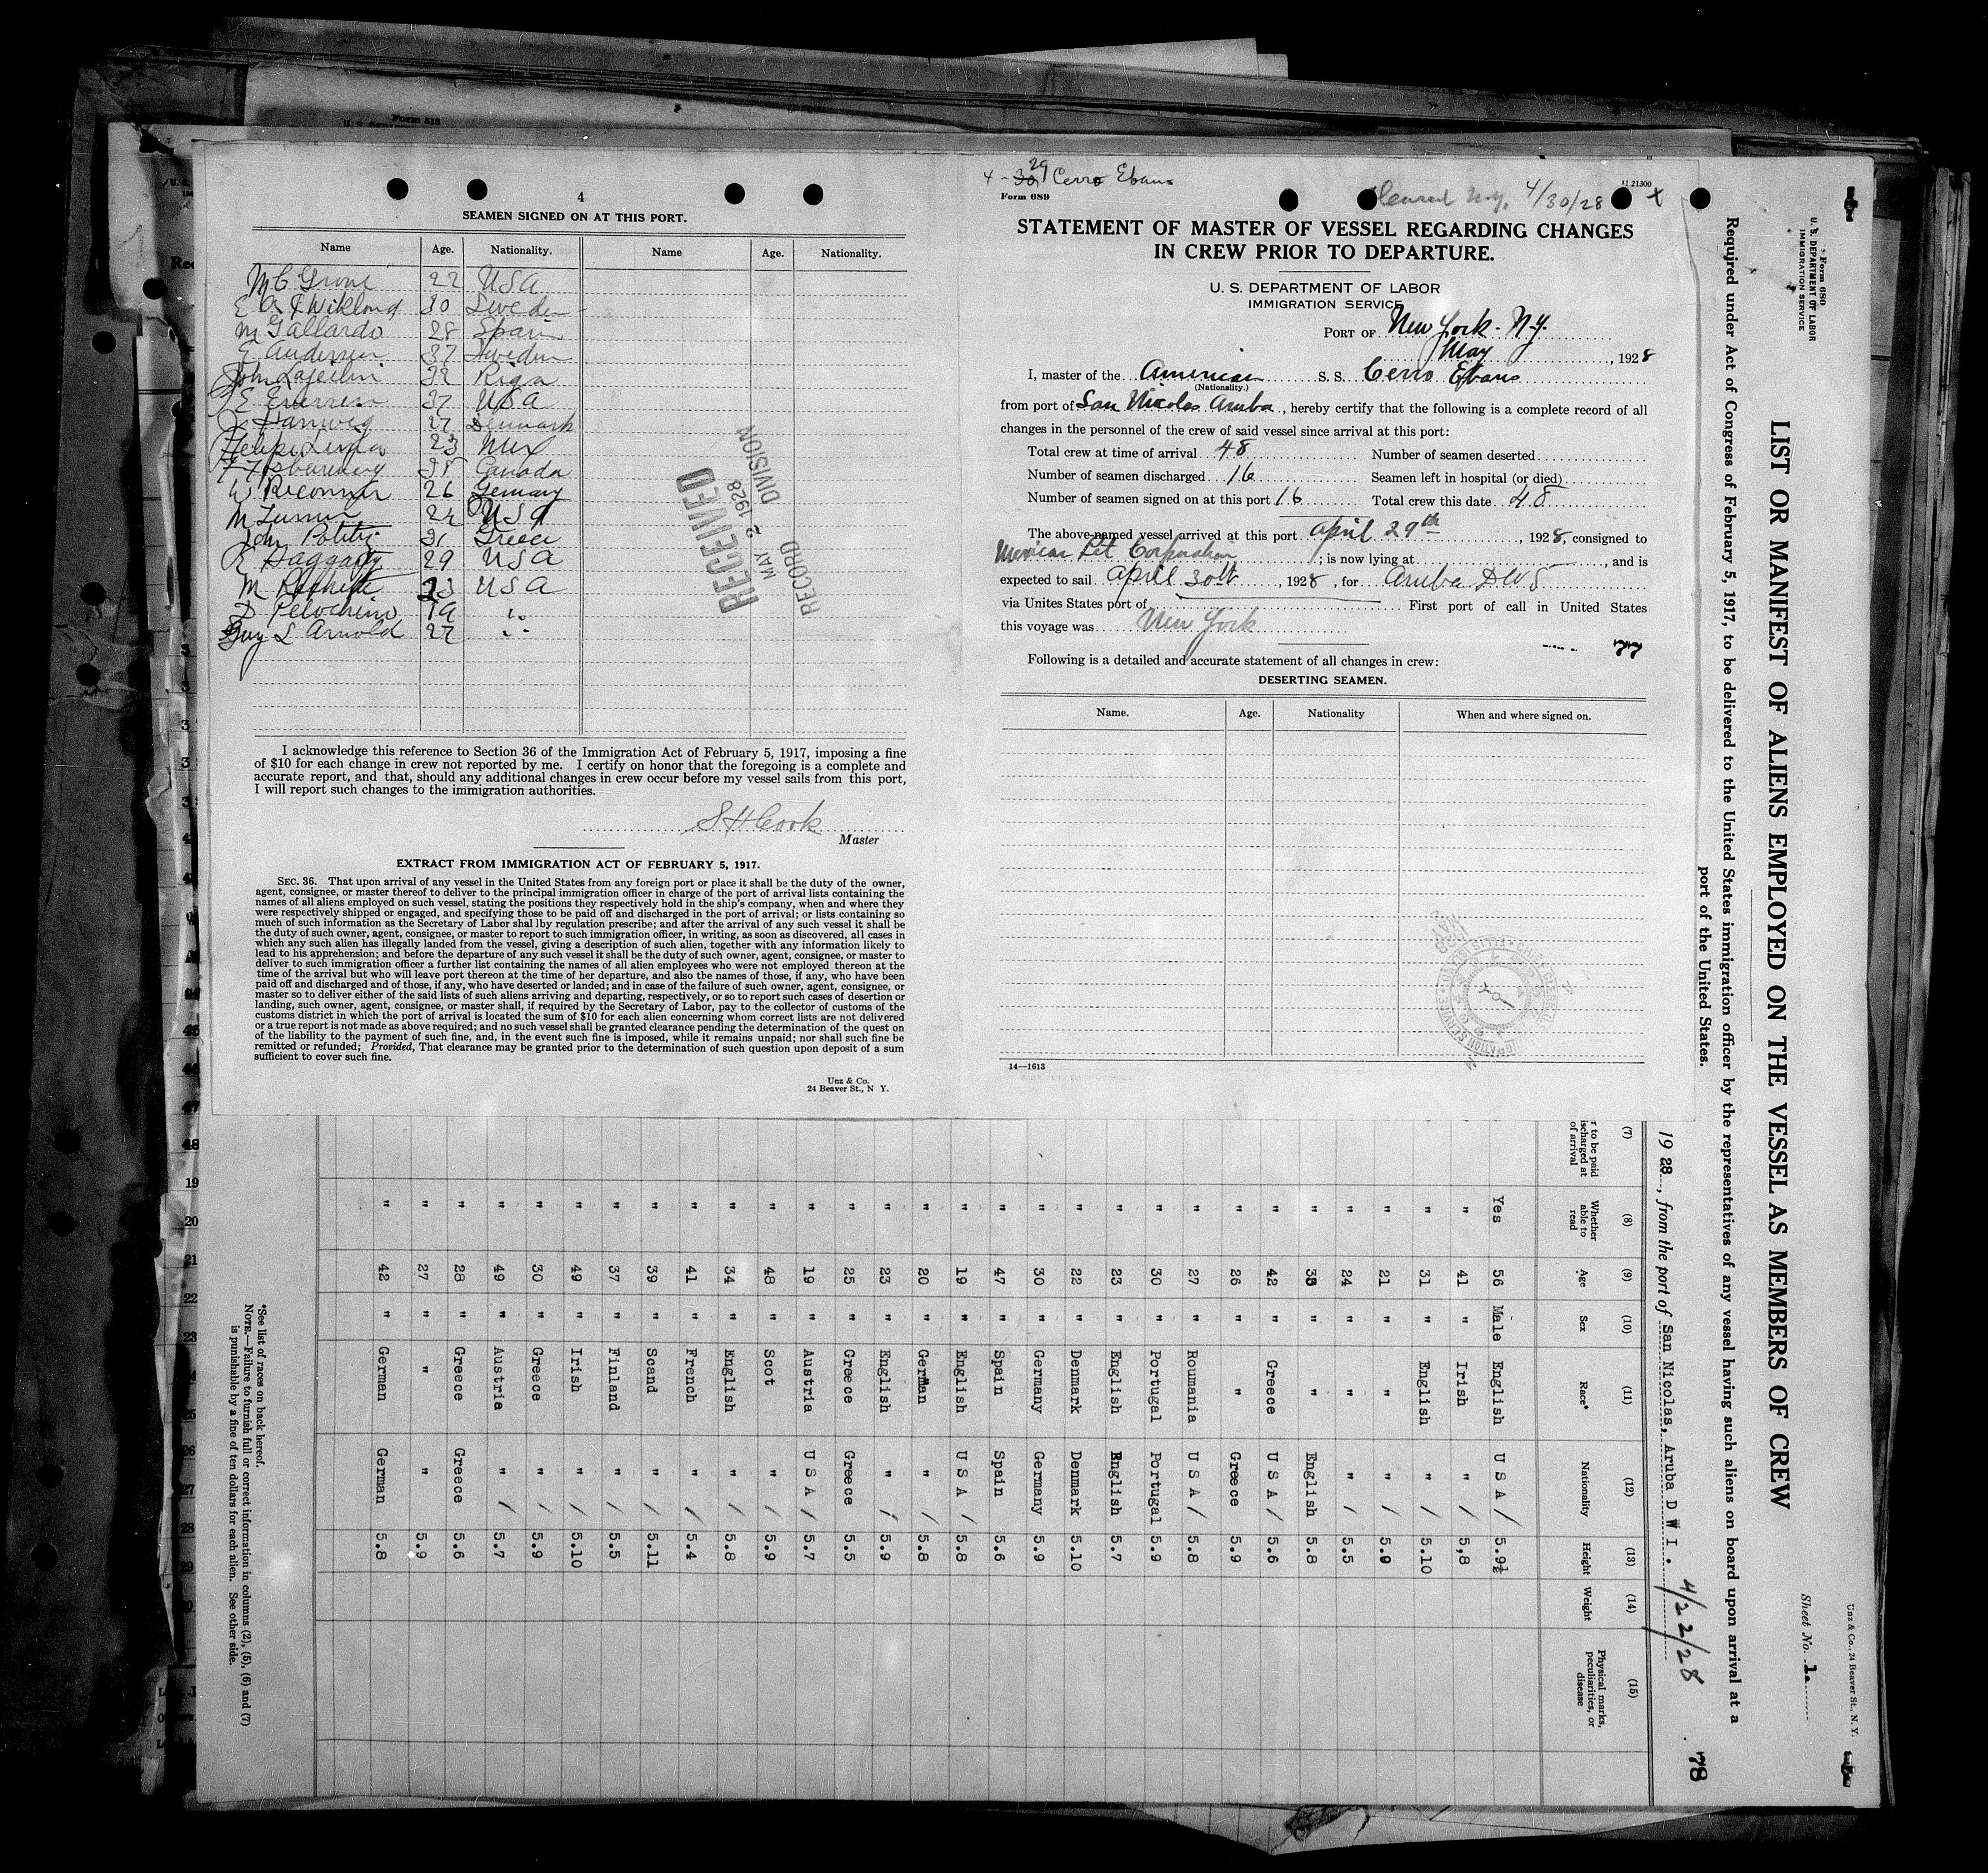 Form 518
4
SEAMEN SIGNED ON AT THIS PORT.
Name Age. Nationality. Name Age. Nationality.
22 USA
30 Sweden
M Gallardo 28 Spain
E Andersen 37 Sweden
John Riga
E 37 USA
27 Denmark
Felipe 23 Mex
Canada
W 26 Germany
M Turner USA
John Politis 31 Greece
E Haggarty 29 USA
M 23 USA
D 19 "
Guy L Arnold 27 "
RECEIVED
MAY 2 1928
RECORD DIVISION
I acknowledge this reference to Section 36 of the Immigration Act of February 5, 1917, imposing a fine
of $10 for each change in crew not reported by me. I certify on honor that the foregoing is a complete and
accurate report, and that, should any additional changes in crew occur before my vessel sails from this port,
I will report such changes to the immigration authorities.
S H Cook
Master
EXTRACT FROM IMMIGRATION ACT OF FEBRUARY 5, 1917.
SEC. 36. That upon arrival of any vessel in the United States from any foreign port or place it shall be the duty of the owner,
agent, consignee, or master thereof to deliver to the principal immigration officer in charge of the port of arrival lists containing the
names of all aliens employed on such vessel, stating the positions they respectively hold in the ship's company, when and where they
were respectively shipped or engaged, and specifying those to be paid off and discharged in the port of arrival; or lists containing so
much of such information as the Secretary of Labor shal lby regulation prescribe; and after the arrival of any such vessel it shall be
the duty of such owner, agent, consignee, or master to report to such immigration officer, in writing, as soon as discovered, all cases in
which any such alien has illegally landed from the vessel, giving a description of such alien, together with any information likely to
lead to his apprehension; and before the departure of any such vessel it shall be the duty of such owner, agent, consignee, or master to
deliver to such immigration officer a further list containing the names of all alien employees who were not employed thereon at the
time of the arrival but who will leave port thereon at the time of her departure, and also the names of those, if any, who have been
paid off and discharged and of those, if any, who have deserted or landed; and in case of the failure of such owner, agent, consignee, or
master so to deliver either of the said lists of such aliens arriving and departing, respectively, or so to report such cases of desertion or
landing, such owner, agent, consignee, or master shall, if required by the Secretary of Labor, pay to the collector of customs of the
customs district in which the port of arrival is located the sum of $10 for each alien concerning whom correct lists are not delivered
or a true report is not made as above required; and no such vessel shall be granted clearance pending the determination of the quest on
of the liability to the payment of such fine, and, in the event such fine is imposed, while it remains unpaid; nor shall such fine be
remitted or refunded; Provided, That clearance may be granted prior to the determination of such question upon deposit of a sum
sufficient to cover such fine.
Unz & Co.
24 Beaver St., N Y.
4-29 Cerro Ebano
Form 689
Cleared N.Y. 4/30/28
11 21300
STATEMENT OF MASTER OF VESSEL REGARDING CHANGES
IN CREW PRIOR TO DEPARTURE.
U. S. DEPARTMENT OF LABOR
IMMIGRATION SERVICE
PORT OF New York. N.Y.
May, 1928
I, master of the American S. S. Cerro Ebano
(Nationality.)
from port of San Nicolas Aruba, hereby certify that the following is a complete record of all
changes in the personnel of the crew of said vessel since arrival at this port:
Total crew at time of arrival 48 Number of seamen deserted
Number of seamen discharged 16 Seamen left in hospital (or died)
Number of seamen signed on at this port 16 Total crew this date 48
The above-named vessel arrived at this port April 29th, 1928, consigned to
Mexican Pet Corporation; is now lying at, and is
expected to sail April 30th, 1928, for Aruba DWI
via Unites States port of First port of call in United States
this voyage was New York
77
Following is a detailed and accurate statement of all changes in crew:
DESERTING SEAMEN.
Name. Age. Nationality When and where signed on.
14—1613
Form 680
U. S. DEPARTMENT OF LABOR
IMMIGRATION SERVICE
Unz & Co., 24 Beaver St., N. Y.
Sheet No. 1.
LIST OR MANIFEST OF ALIENS EMPLOYED ON THE VESSEL AS MEMBERS OF CREW
Required under Act of Congress of February 5, 1917, to be delivered to the United States immigration officer by the representatives of any vessel having such aliens on board upon arrival at a
port of the United States.
1928, from the port of San Nicolas, Aruba D W I. 4/22/28
78
(7) (8) (9) (10) (11) (12) (13) (14) (15)
r to be paid ischarged at of arrival Whether able to read Age Sex Race* Nationality Height Weight Physical marks, peculiarities, or disease
Yes 56 Male English U S A / 5.9½
" 41 " Irish " / 5,8
" 31 " English " / 5.10
" 21 " " " / 5.9
" 24 " " " / 5.5
" 35 " " English 5.8
" 42 " Greece U S A / 5.6
" 26 " " Greece 5.9
" 27 " Roumania U S A / 5.8
" 30 " Portugal Portugal 5.9
" 23 " English English 5.7
" 22 " Denmark Denmark 5.10
" 30 " Germany Germany 5.9
" 47 " Spain Spain 5.6
" 19 " English U S A / 5.8
" 20 " German " / 5.8
" 23 " English " / 5.9
" 25 " Greece Greece 5.5
" 19 " Austria U S A / 5.7
" 48 " Scot " / 5.9
" 34 " English " / 5.8
" 41 " French " / 5.4
" 39 " Scand " / 5.11
" 37 " Finland " / 5.5
" 49 " Irish " / 5.10
" 30 " Greece " / 5.9
" 49 " Austria " / 5.7
" 28 " Greece Greece 5.6
" 27 " " " 5.9
" 42 " German German 5.8
*See list of races on back hereof.
NOTE.—Failure to furnish full or correct information in columns (2), (5), (6) and (7)
is punishable by a fine of ten dollars for each alien. See other side.